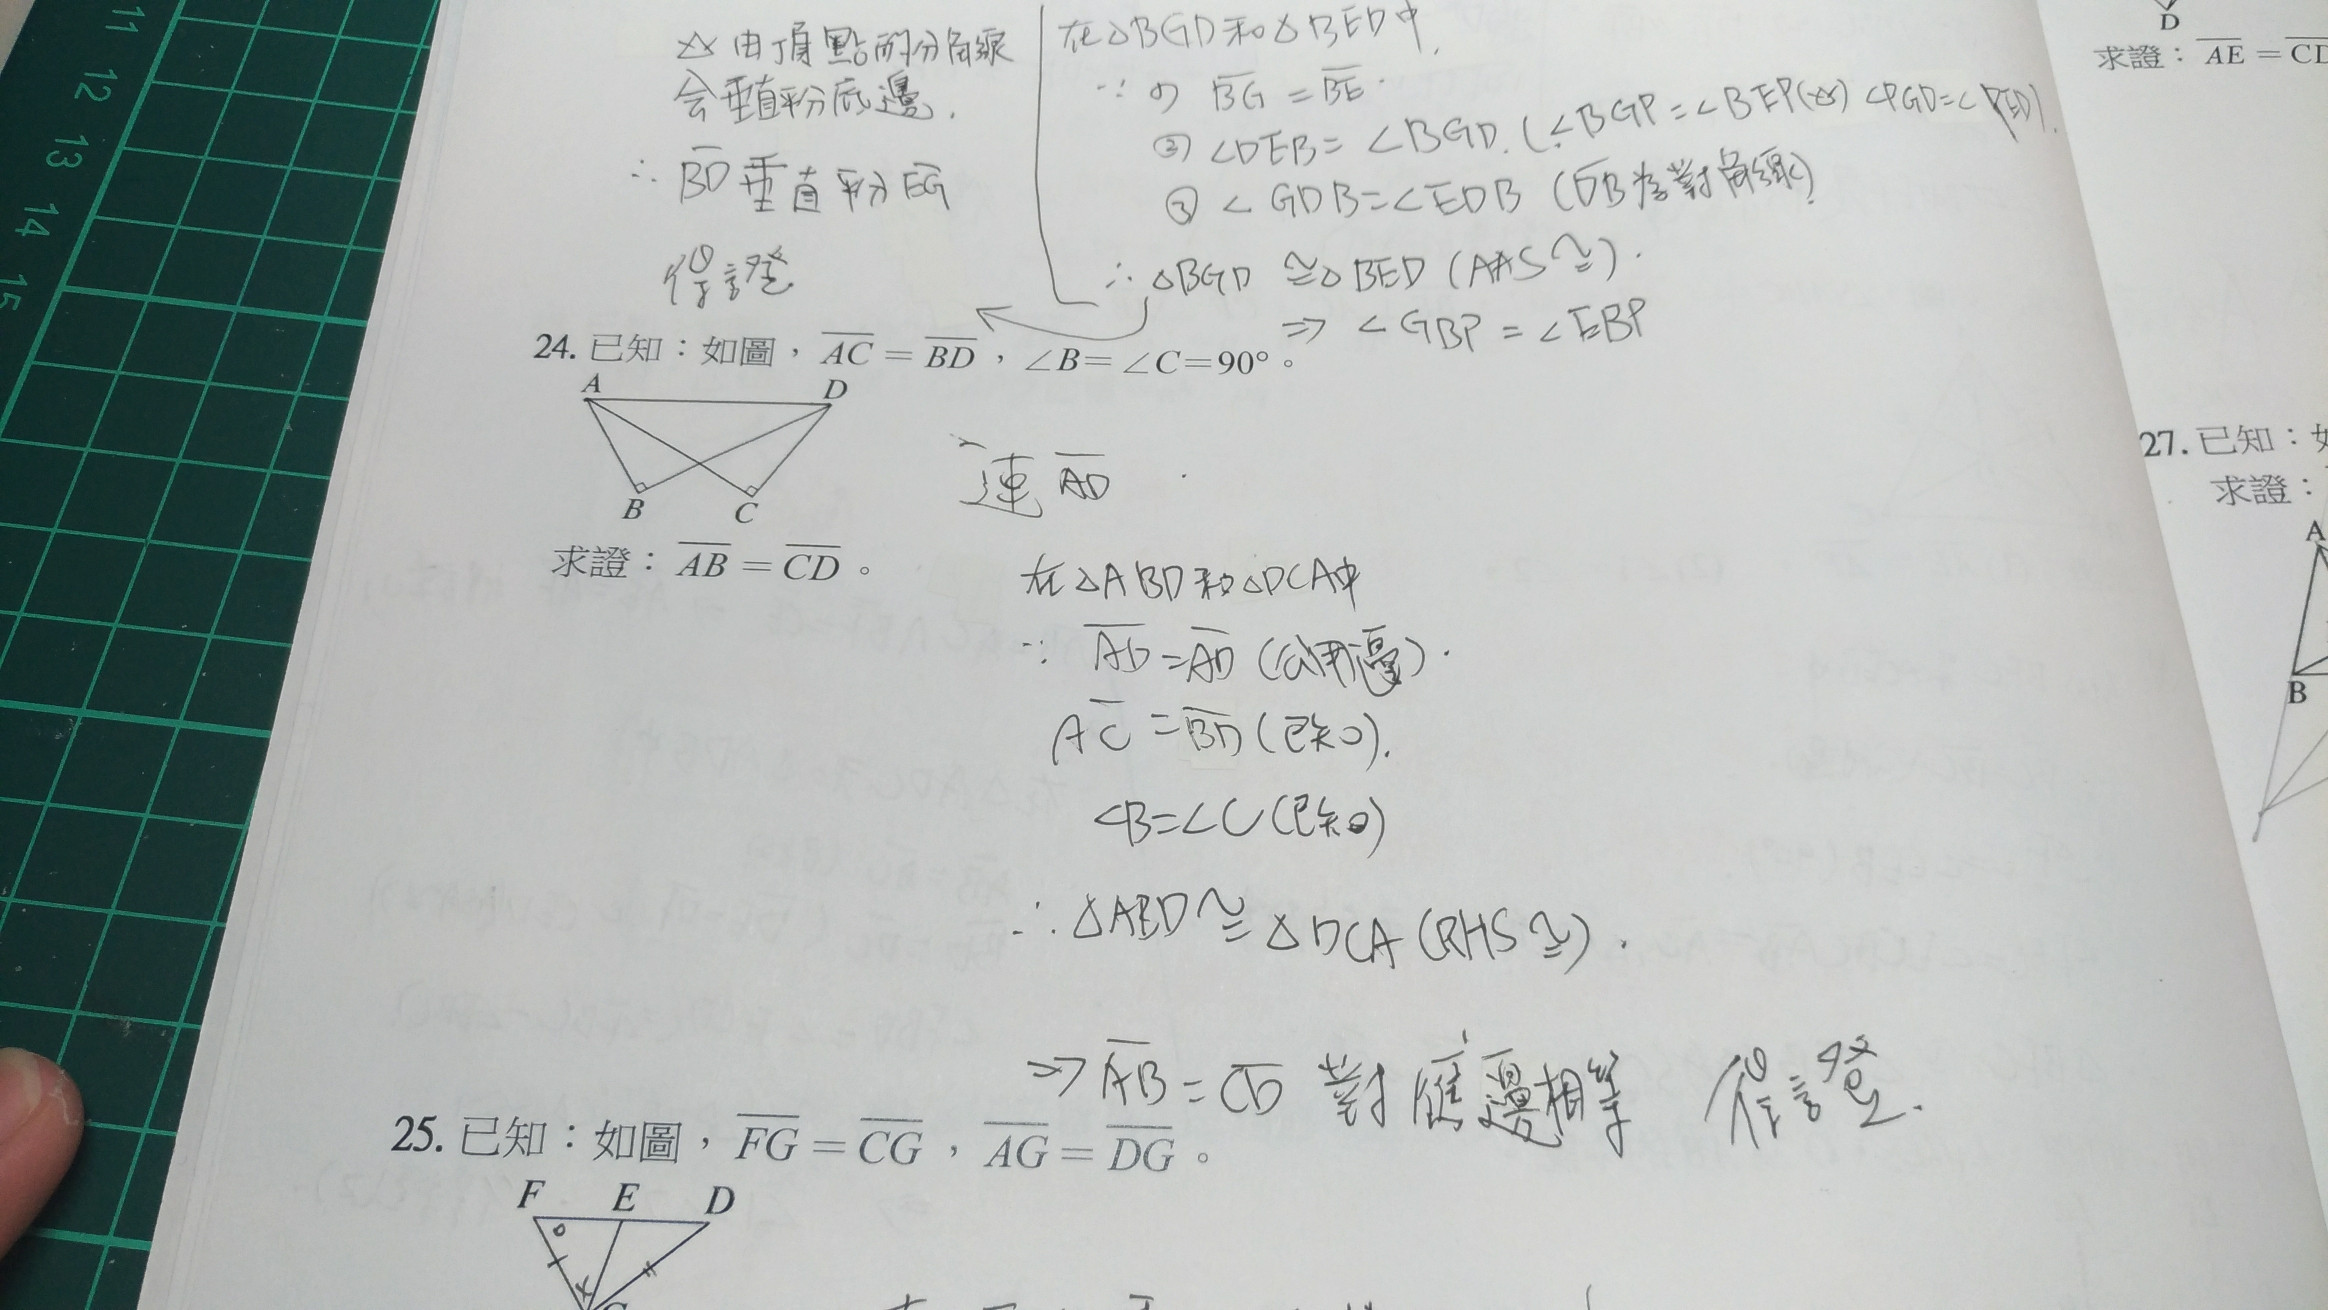 11
12
13
14
15
由頂點的分角線
会垂直平分底邊.
∴ BD 垂直平分 EG
得證
在△BGD和△BED中,
∵ ① BG = BE
② ∠DEB = ∠BGD. (∠BGP = ∠BEP ∠PGD = ∠PED).
③ ∠GDB = ∠EDB (DB為對角線)
∴ △BGD ≅ △BED (AAS≅).
⇒ ∠GBP = ∠EBP
24. 已知：如圖，AC = BD，∠B = ∠C = 90°。
A D
B C
求證：AB = CD。
連 AD
在△ABD和△DCA中
∵ AD = AD (公用邊).
AC = BD (已知).
∠B = ∠C (已知)
∴ △ABD ≅ △DCA (RHS≅).
⇒ AB = CD 對應邊相等 得證.
25. 已知：如圖，FG = CG，AG = DG。
F E D
D
求證：AE = CD
27. 已知：如
求證：
A
B